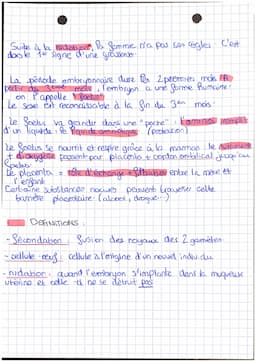 Suite à la nidation, la femme n'a pas ses règles. C'est
donc le 1er signe d'une grossesse.
La période embryonnaire dure les 2 premiers mois. À
partir du 3ème mois, l'embryon a une forme humaine:
on l'appelle fœtus.
Le sexe est reconnaissable à la fin du 3ème mois.
Le fœtus va grandir dans une "poche": l'amnios rempli
d'un liquide: le liquide amniotique (protection)
Le fœtus se nourrit et respire grâce à la maman: le
+ dioxygène passent par placenta + cordon ombilical jusqu'au
fœtus.
Le placenta = rôle d'échange + filtration entre la mère et
l'enfant.
Certaines substances nocives peuvent traverser cette
barrière placentaire: (alcool, drogue...)
DEFINITIONS:
- Fécondation: fusion des noyaux des 2 gamètes
- cellule-œuf: cellule à l'origine d'un nouvel individu
- nidation: quand l'embryon s'implante dans la muqueuse
utérine et celle-ci ne se détruit pas